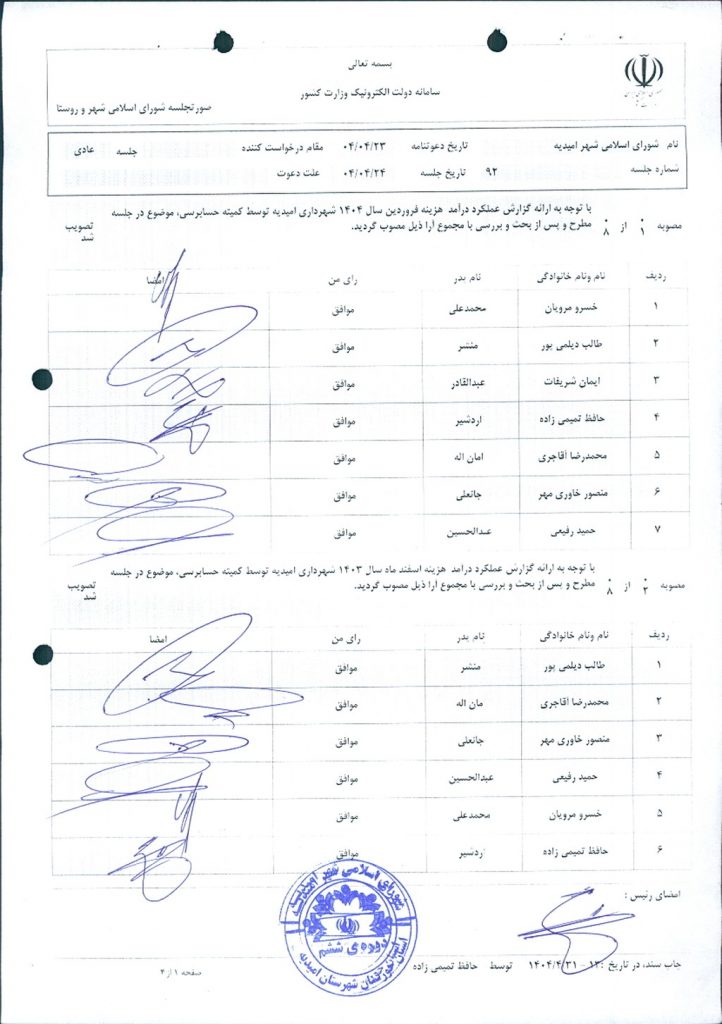 بسمه تعالی
سامانه دولت الکترونیک وزارت کشور
صورتجلسه شورای اسلامی شهر و روستا
نام شورای اسلامی شهر امیدیه تاریخ دعوتنامه ۰۴/۰۴/۲۳ مقام درخواست کننده جلسه عادی
شماره جلسه ۹۲ تاریخ جلسه ۰۴/۰۴/۲۴ علت دعوت
مصوبه ۰۱ از ۰۸ با توجه به ارائه گزارش عملکرد درآمد هزینه فروردین سال ۱۴۰۴ شهرداری امیدیه توسط کمیته حسابرسی، موضوع در جلسه
مطرح و پس از بحث و بررسی با مجموع آرا ذیل مصوب گردید. تصویب شد
ردیف نام ونام خانوادگی نام پدر رای من امضا
۱ خسرو مرویان محمدعلی موافق
۲ طالب دیلمی پور منشر موافق
۳ ایمان شریفات عبدالقادر موافق
۴ حافظ تمیمی زاده اردشیر موافق
۵ محمدرضا آقاجری امان اله موافق
۶ منصور خاوری مهر جانعلی موافق
۷ حمید رفیعی عبدالحسین موافق
مصوبه ۰۲ از ۰۸ با توجه به ارائه گزارش عملکرد درآمد هزینه اسفند ماه سال ۱۴۰۳ شهرداری امیدیه توسط کمیته حسابرسی، موضوع در جلسه
مطرح و پس از بحث و بررسی با مجموع آرا ذیل مصوب گردید. تصویب شد
ردیف نام ونام خانوادگی نام پدر رای من امضا
۱ طالب دیلمی پور منشر موافق
۲ محمدرضا آقاجری مان اله موافق
۳ منصور خاوری مهر جانعلی موافق
۴ حمید رفیعی عبدالحسین موافق
۵ خسرو مرویان محمدعلی موافق
۶ حافظ تمیمی زاده اردشیر موافق
امضای رئیس :
شورای اسلامی شهر امیدیه
دوره‌ی ششم
استان خوزستان شهرستان امیدیه
چاپ سند، در تاریخ : ۱۴۰۴/۴/۳۱ توسط حافظ تمیمی زاده
صفحه ۱ از ۴